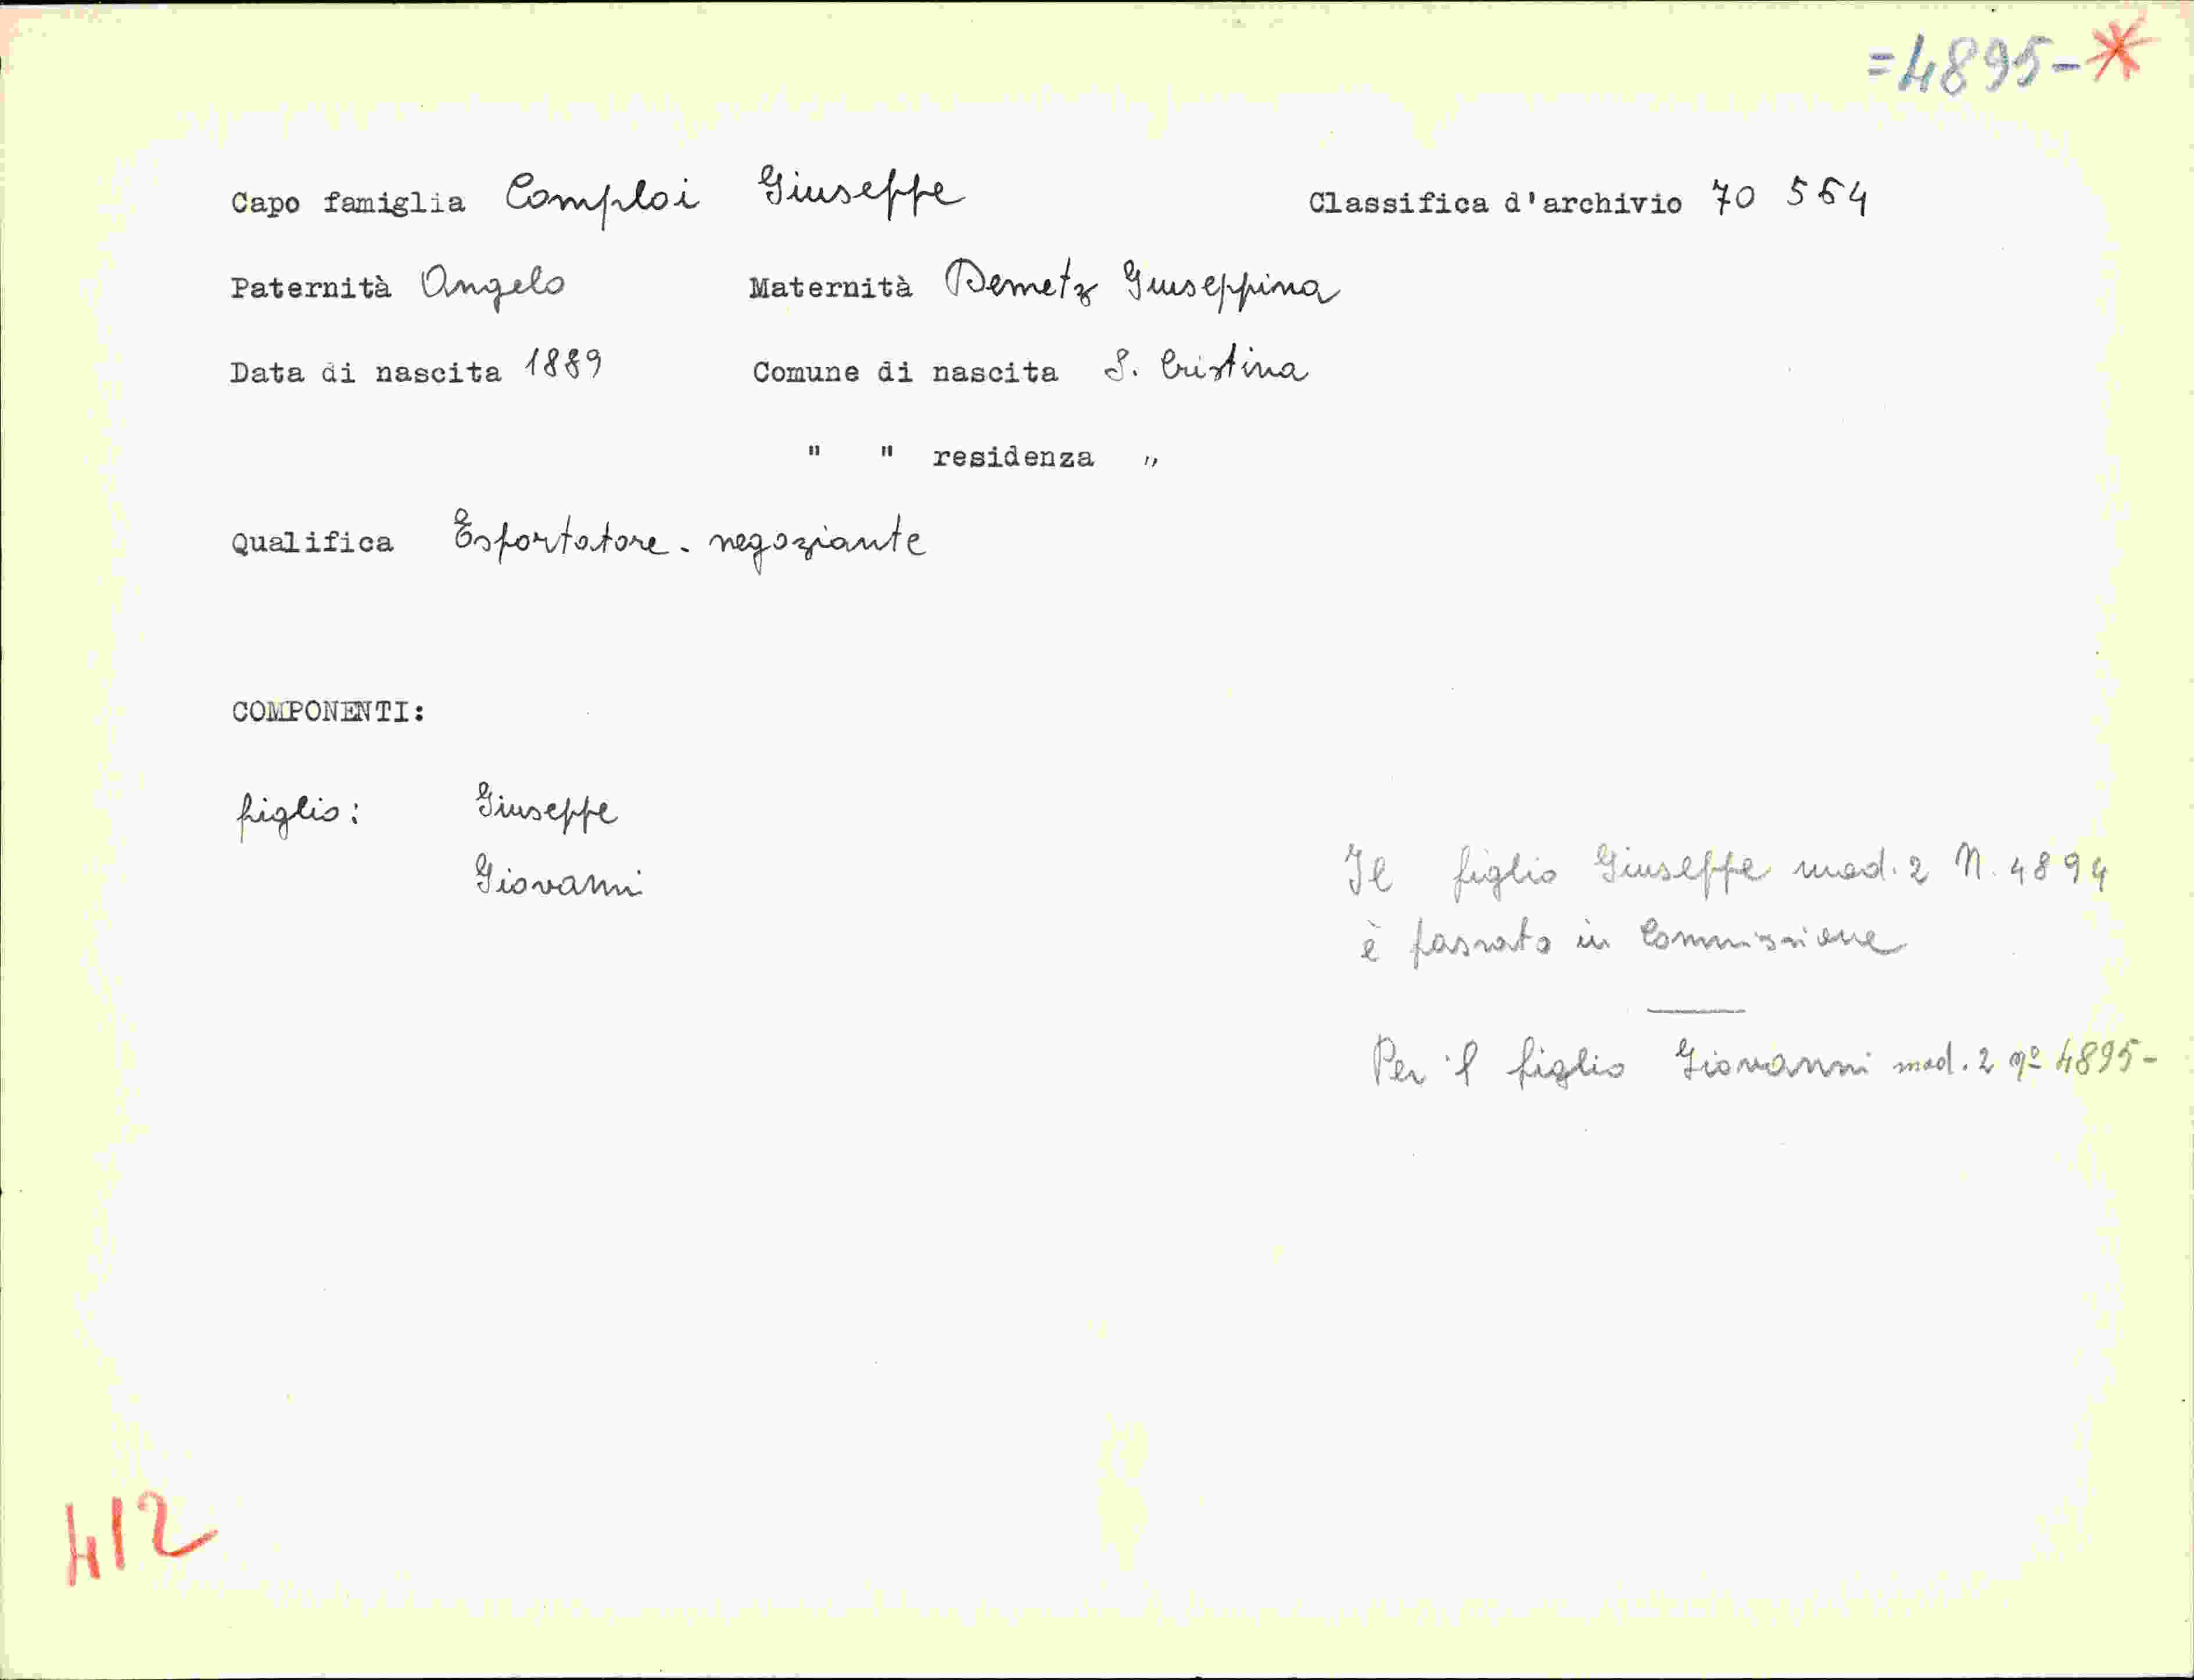 =4895-*
Capo famiglia Comploi Giuseppe Classifica d'archivio 70 564
Paternità Angelo Maternità Demetz Giuseppina
Data di nascita 1889 Comune di nascita S. Cristina
" " residenza "
Qualifica Esportatore - negoziante
COMPONENTI:
figlio: Giuseppe
Giovanni
Il figlio Giuseppe mod. 2 N. 4894
è passato in Commissione
Per il figlio Giovanni mod. 2 nº 4895-
412